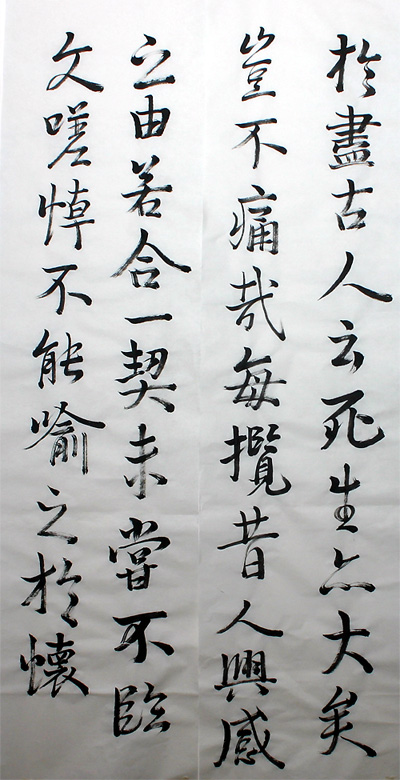 於盡古人云死生亦大矣
豈不痛哉每攬昔人興感
之由若合一契未嘗不臨
文嗟悼不能喻之於懷